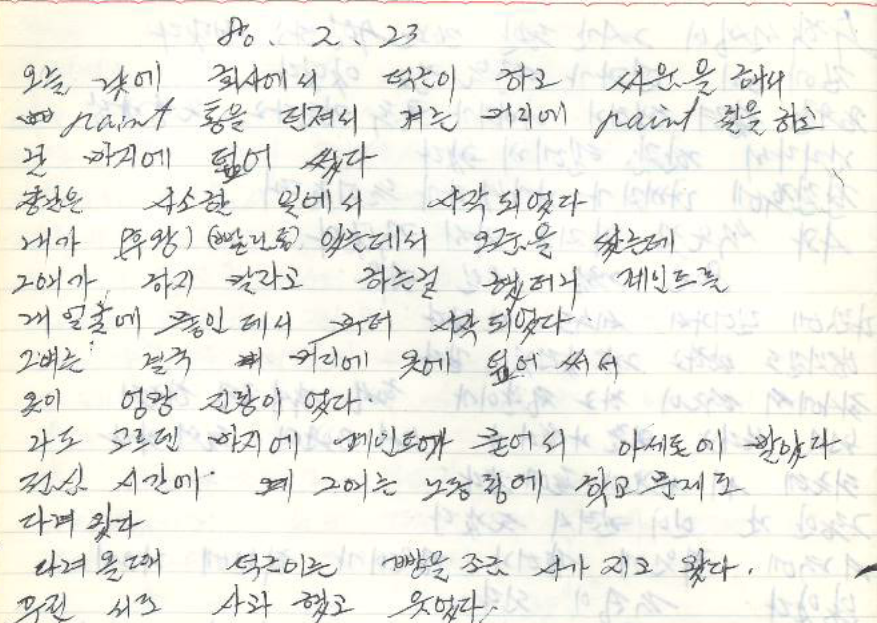 80. 2. 23
오늘 낮에 회사에서 덕근이 하고 싸움을 해서
paint 통을 던져서 커는 머리에 paint 칠을 하고
난 바지에 덮어 썼다
싸움은 사소한 일에서 시작 되었다
내가 (후왕) (빨간통) 있는데서 오줌을 쌌는데
그애가 하지 말라고 하는걸 했더니 페인트를
내 얼굴에 붙인 데서 부터 시작 되었다.
그애는 결국 머리에 옷에 덮어 써서
옷이 엉망 진창이 었다.
나도 고르덴 바지에 페인트가 묻어서 아세톤에 빨았다
점심 시간에 그애는 노동청에 학교 문제로
다녀 왔다
다녀 올때 덕근이는 빵을 조금 사가 지고 왔다.
우린 서로 사과 했고 웃었다.